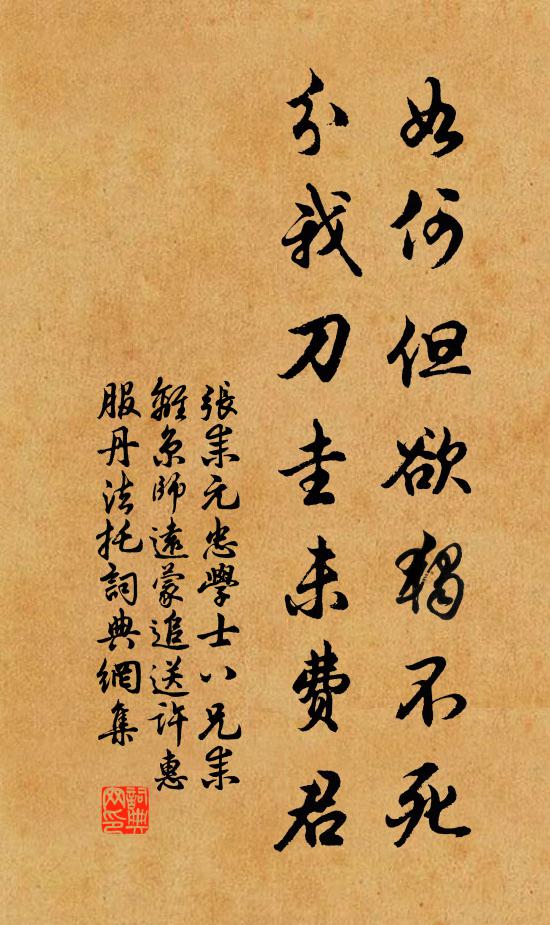 如何但欲獨不死
分我刀圭未費君
張耒元忠學士八兄耒
離京師遠蒙追送許惠
服丹法托詞典網集
詞典网印